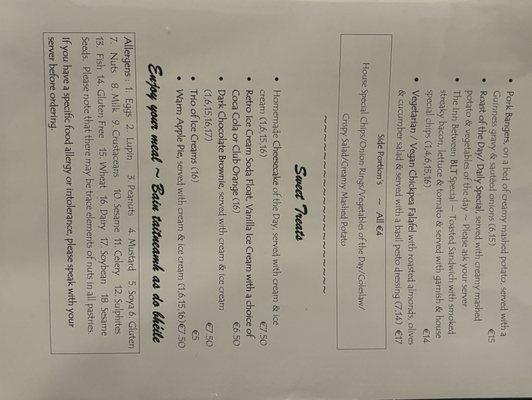 • Pork Bangers, on a bed of creamy mashed potato, served with a
Guinness gravy & sautéed onions (6,15) €15
• Roast of the Day/ Daily Special, served with creamy mashed
potato & vegetables of the day ~ Please ask your server
• The Inn Between BLT Special ~ Toasted Sandwich with smoked
streaky bacon, lettuce & tomato & served with garnish & house
special chips (1,4,6,15,16) €14
• Vegetarian / Vegan Chickpea Falafel with roasted almonds, olives
& cucumber salad & served with a basil pesto dressing (7,14) €17
Side Portion's ~ All €4
House Special Chips/Onion Rings/Vegetables of the Day/Coleslaw/
Crispy Salad/Creamy Mashed Potato
~~~~~~~~~~~~~~~~~~~~~~~~~~
Sweet Treats
• Homemade Cheesecake of the Day, served with cream & ice
cream (1,6,15,16) €7.50
• Retro Ice Cream Soda Float, Vanilla Ice Cream with a choice of
Coca Cola or Club Orange (16) €6.50
• Dark Chocolate Brownie, served with cream & ice cream
(1,6,15,16,17) €7.50
• Trio of Ice Creams (16) €5
• Warm Apple Pie, served with cream & ice cream (1,6,15,16) €7.50
Enjoy your meal ~ Bain taitneamh as do bhéile
Allergens : 1. Eggs 2. Lupin 3. Peanuts 4. Mustard 5. Soya 6. Gluten
7. Nuts 8. Milk 9. Crustaceans 10. Sesame 11. Celery 12. Sulphites
13. Fish 14. Gluten Free 15. Wheat 16. Dairy 17. Soybean 18. Sesame
Seeds. Please note that there may be trace elements of nuts in all pastries.
If you have a specific food allergy or intolerance, please speak with your
server before ordering.